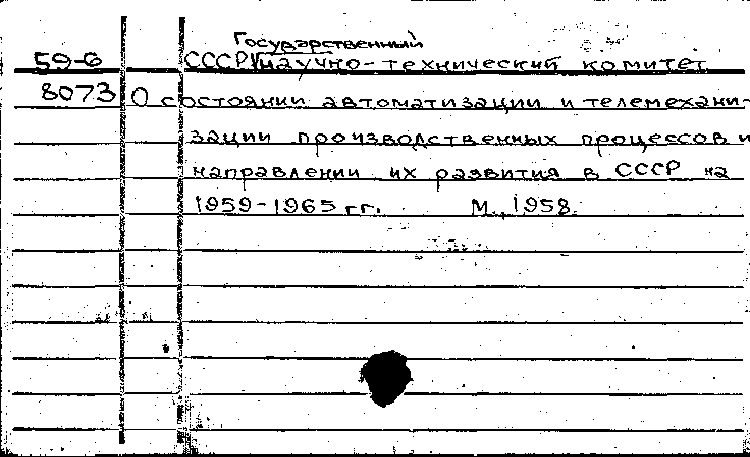 Государственный
59-6 СССР научно-технический комитет
8073 О состоянии автоматизации и телемехани-
зации производственных процессов и
направлении их развития в СССР на
1959-1965 гг. М., 1958.